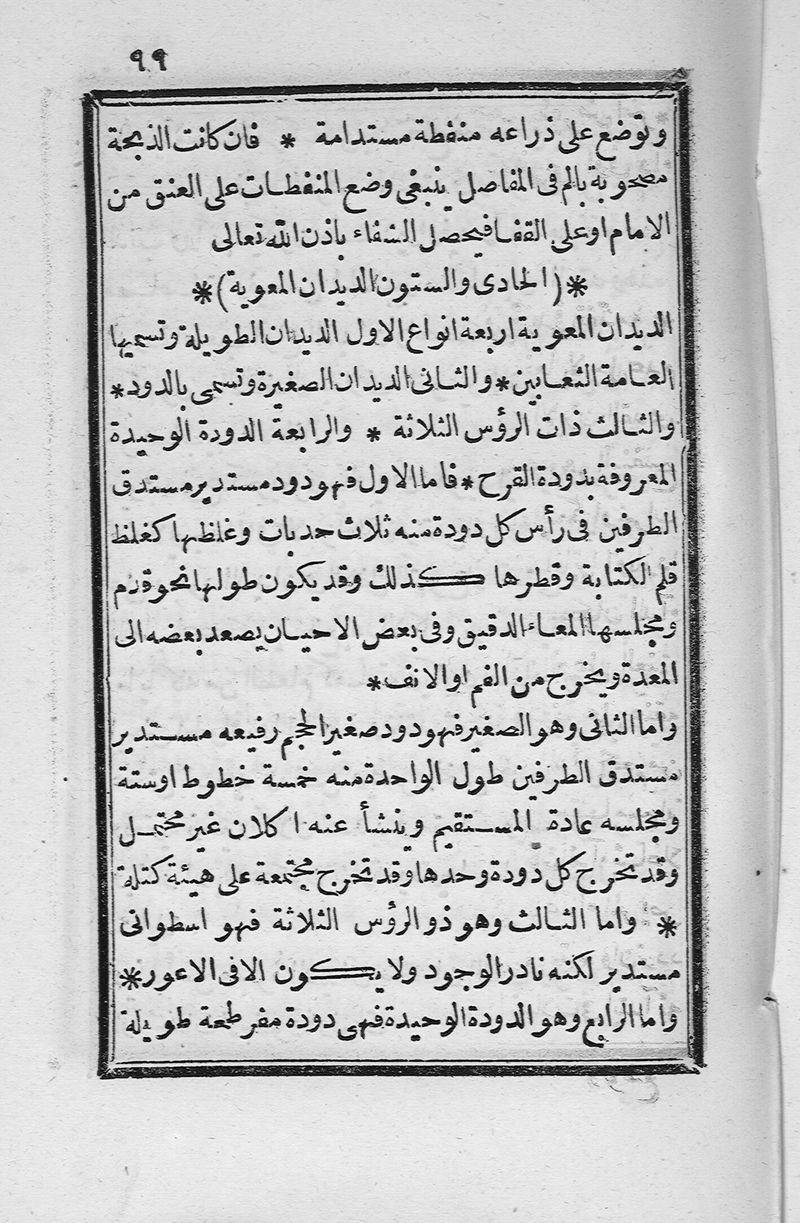 ٩٩
وتوضع على ذراعه منفطة مستدامة * فان كانت الذبحة
مصحوبة بالم فى المفاصل ينبغى وضع المنفطات على العنق من
الامام او على القفا فيحصل الشفاء باذن الله تعالى
*(الحادى والستون الديدان المعوية)*
الديدان المعوية اربعة انواع الاول الديدان الطويلة وتسميها
العامة الثعابين * والثانى الديدان الصغيرة وتسمى بالدود *
والثالث ذات الرؤس الثلاثة * والرابعة الدودة الوحيدة
المعروفة بدودة القرح * فاما الاول فهو دود مستدير مستدق
الطرفين فى رأس كل دودة منه ثلاث حدبات وغلظها كغلظ
قلم الكتابة وقطرها كذلك وقد يكون طولها نحو قدم
ومجلسها المعاء الدقيق وفى بعض الاحيان يصعد بعضه الى
المعدة ويخرج من الفم او الانف *
واما الثانى وهو الصغير فهو دود صغير الحجم رفيعه مستدير
مستدق الطرفين طول الواحدة منه خمسة خطوط اوستة
ومجلسه عادة المستقيم وينشأ عنه اكلان غير محتمل
وقد تخرج كل دودة وحدها وقد تخرج مجتمعة على هيئة كتلة
* واما الثالث وهو ذو الرؤس الثلاثة فهو اسطوانى
مستدير لكنه نادر الوجود ولا يكون الا فى الاعور *
واما الرابع وهو الدودة الوحيدة فهى دودة مفرطحة طويلة